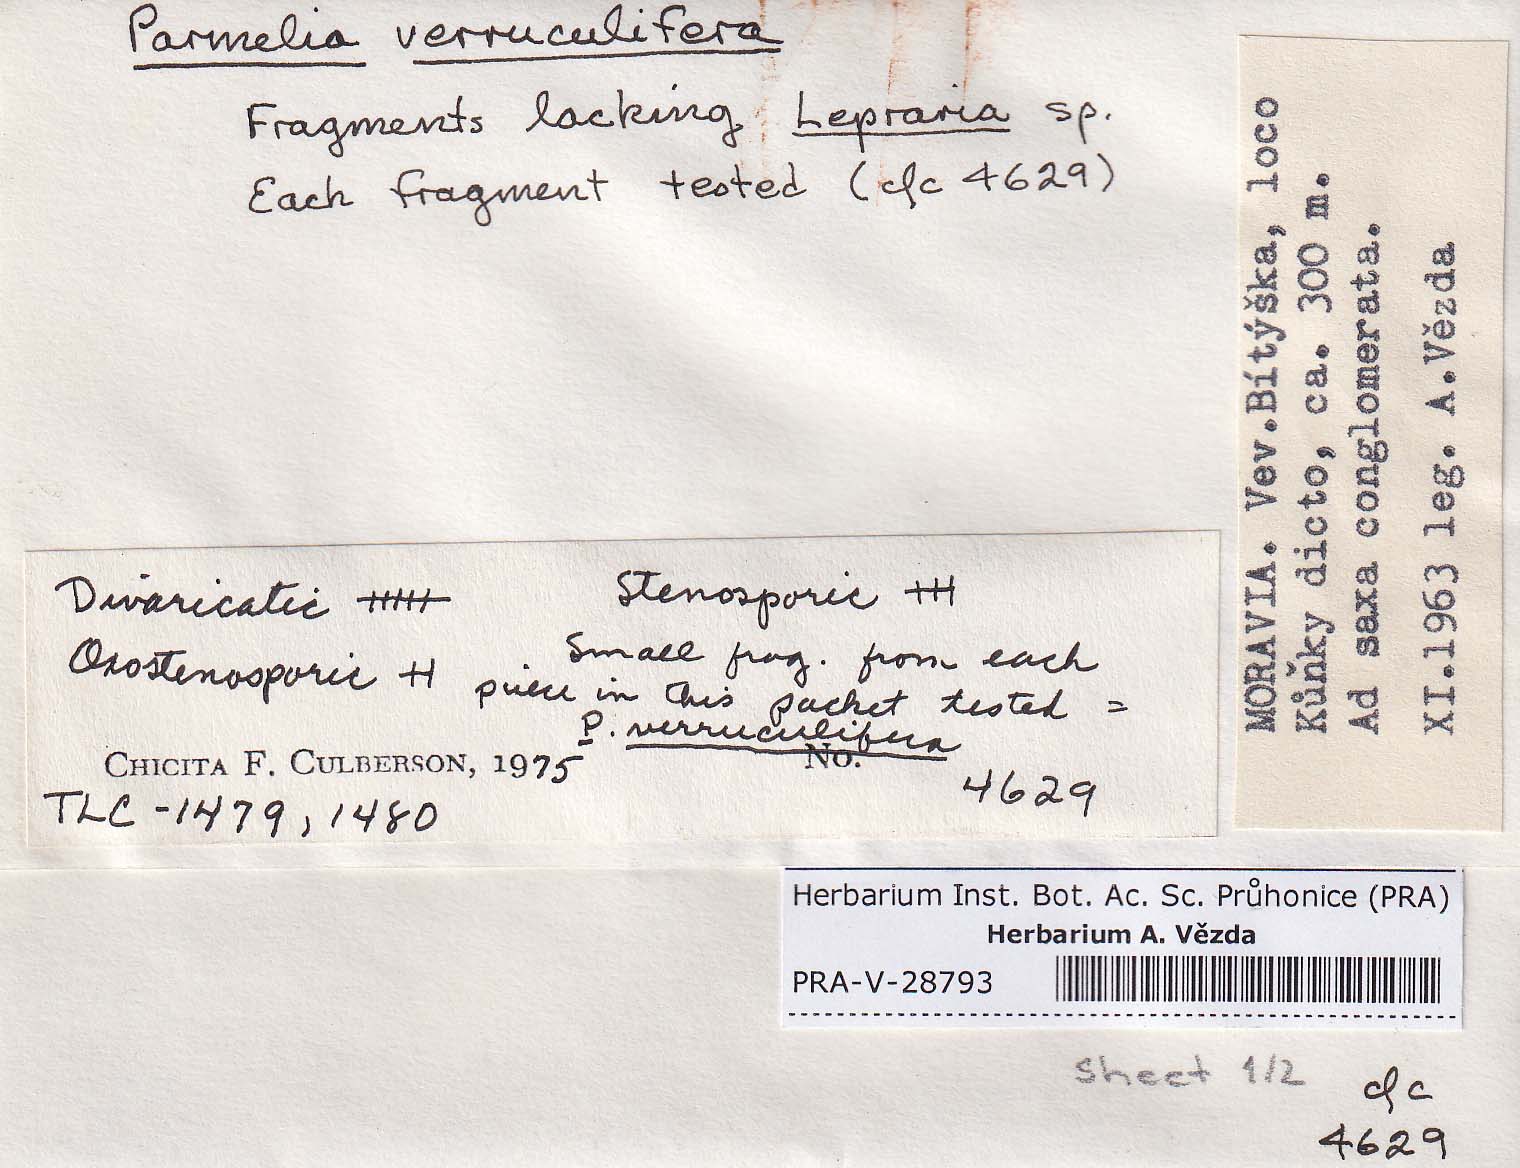 Parmelia verruculifera
Fragments lacking Lepraria sp.
Each fragment tested (cfc 4629)
MORAVIA. Vev.Bítýška, loco
Kůňky dicto, ca. 300 m.
Ad saxa conglomerata.
XI.1963 leg. A.Vězda
Divaricatic +++++
Stenosporic +++
Oxostenosporic ++
Small frag. from each
piece in this packet tested =
P. verruculifera
CHICITA F. CULBERSON, 1975
No.
4629
TLC -1479, 1480
Herbarium Inst. Bot. Ac. Sc. Průhonice (PRA)
Herbarium A. Vězda
PRA-V-28793
sheet 1/2
cfc
4629